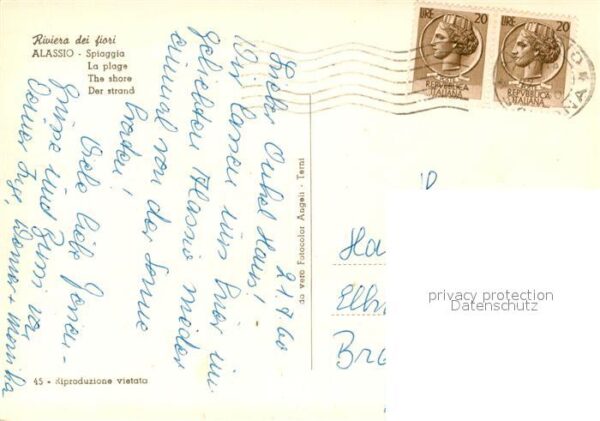 Riviera dei fiori
ALASSIO - Spiaggia
La plage
The shore
Der strand
LIRE 20
REPVBBLICA
ITALIANA
LIRE 20
REPVBBLICA
ITALIANA
21.7.60
Lieber Onkel Hans!
Wir lassen uns hier im
geliebten Alassio wieder
einmal von der Sonne
braten!
Viele liebe Ferien-
grüsse und Bussi von
Deiner Inge, Werner + Monika
da vero Fotocolor Angeli - Terni
Ha
Elb
Bre
privacy protection
Datenschutz
45 - Riproduzione vietata